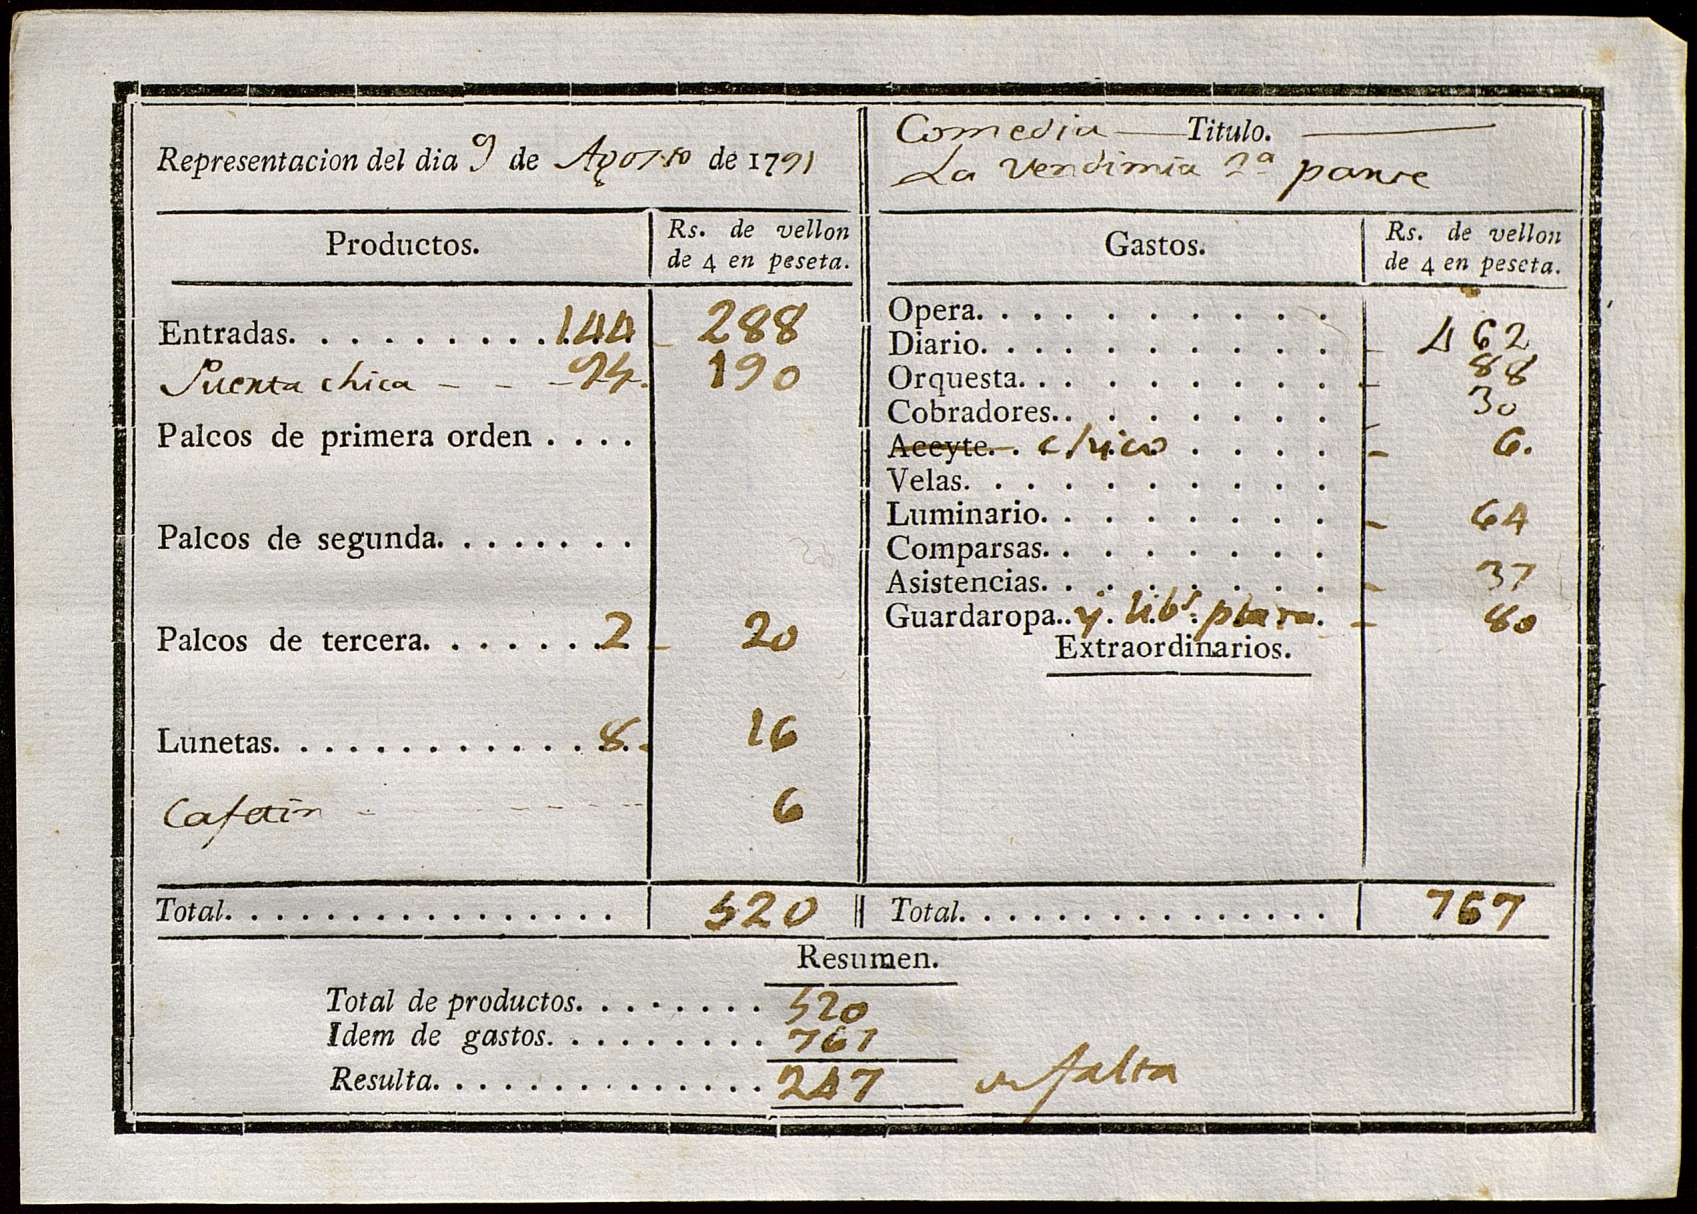 Representacion del dia 9 de Agosto de 1791
Productos. Rs. de vellon
de 4 en peseta.
Entradas. . . . . . . . . . . 144 288
Puerta chica - - - 95. 190
Palcos de primera orden . . . .
Palcos de segunda. . . . . . . .
Palcos de tercera. . . . . . . 2 20
Lunetas. . . . . . . . . . . . . 8. 16
Cafetin - - - - - - 6
Total. . . . . . . . . . . . . . . . 520
Comedia — Titulo. —
La Vendimia 2a parte
Gastos. Rs. de vellon
de 4 en peseta.
Opera. . . . . . . . . . .
Diario. . . . . . . . . . . - 462
Orquesta. . . . . . . . . - 88
Cobradores. . . . . . . . - 30
Aceyte. . chico . . . . - 6.
Velas. . . . . . . . . . .
Luminario. . . . . . . . - 64
Comparsas. . . . . . . .
Asistencias. . . . . . . . - 37
Guardaropa. . y libs. plaza. - 80
Extraordinarios.
Total. . . . . . . . . . . . . . . 767
Resumen.
Total de productos. . . . . . . . 520
Idem de gastos. . . . . . . . . 767
Resulta. . . . . . . . . . . . . . 247 falta